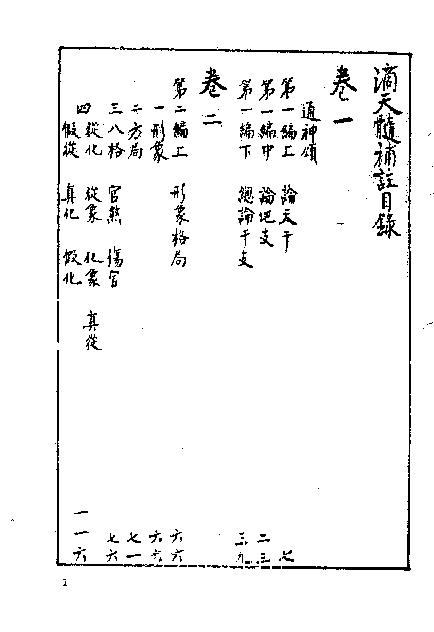 滴天髓補註目錄
卷一
通神頌
第一編上 論天干 七
第一編中 論地支 二三
第一編下 總論干支 三九
卷二
第二編上 形象格局 六六
一形象 六六
二方局 七一
三八格 官煞 傷官 七六
四從化 從象 化象 真從
假從 真化 假化 一一六
1